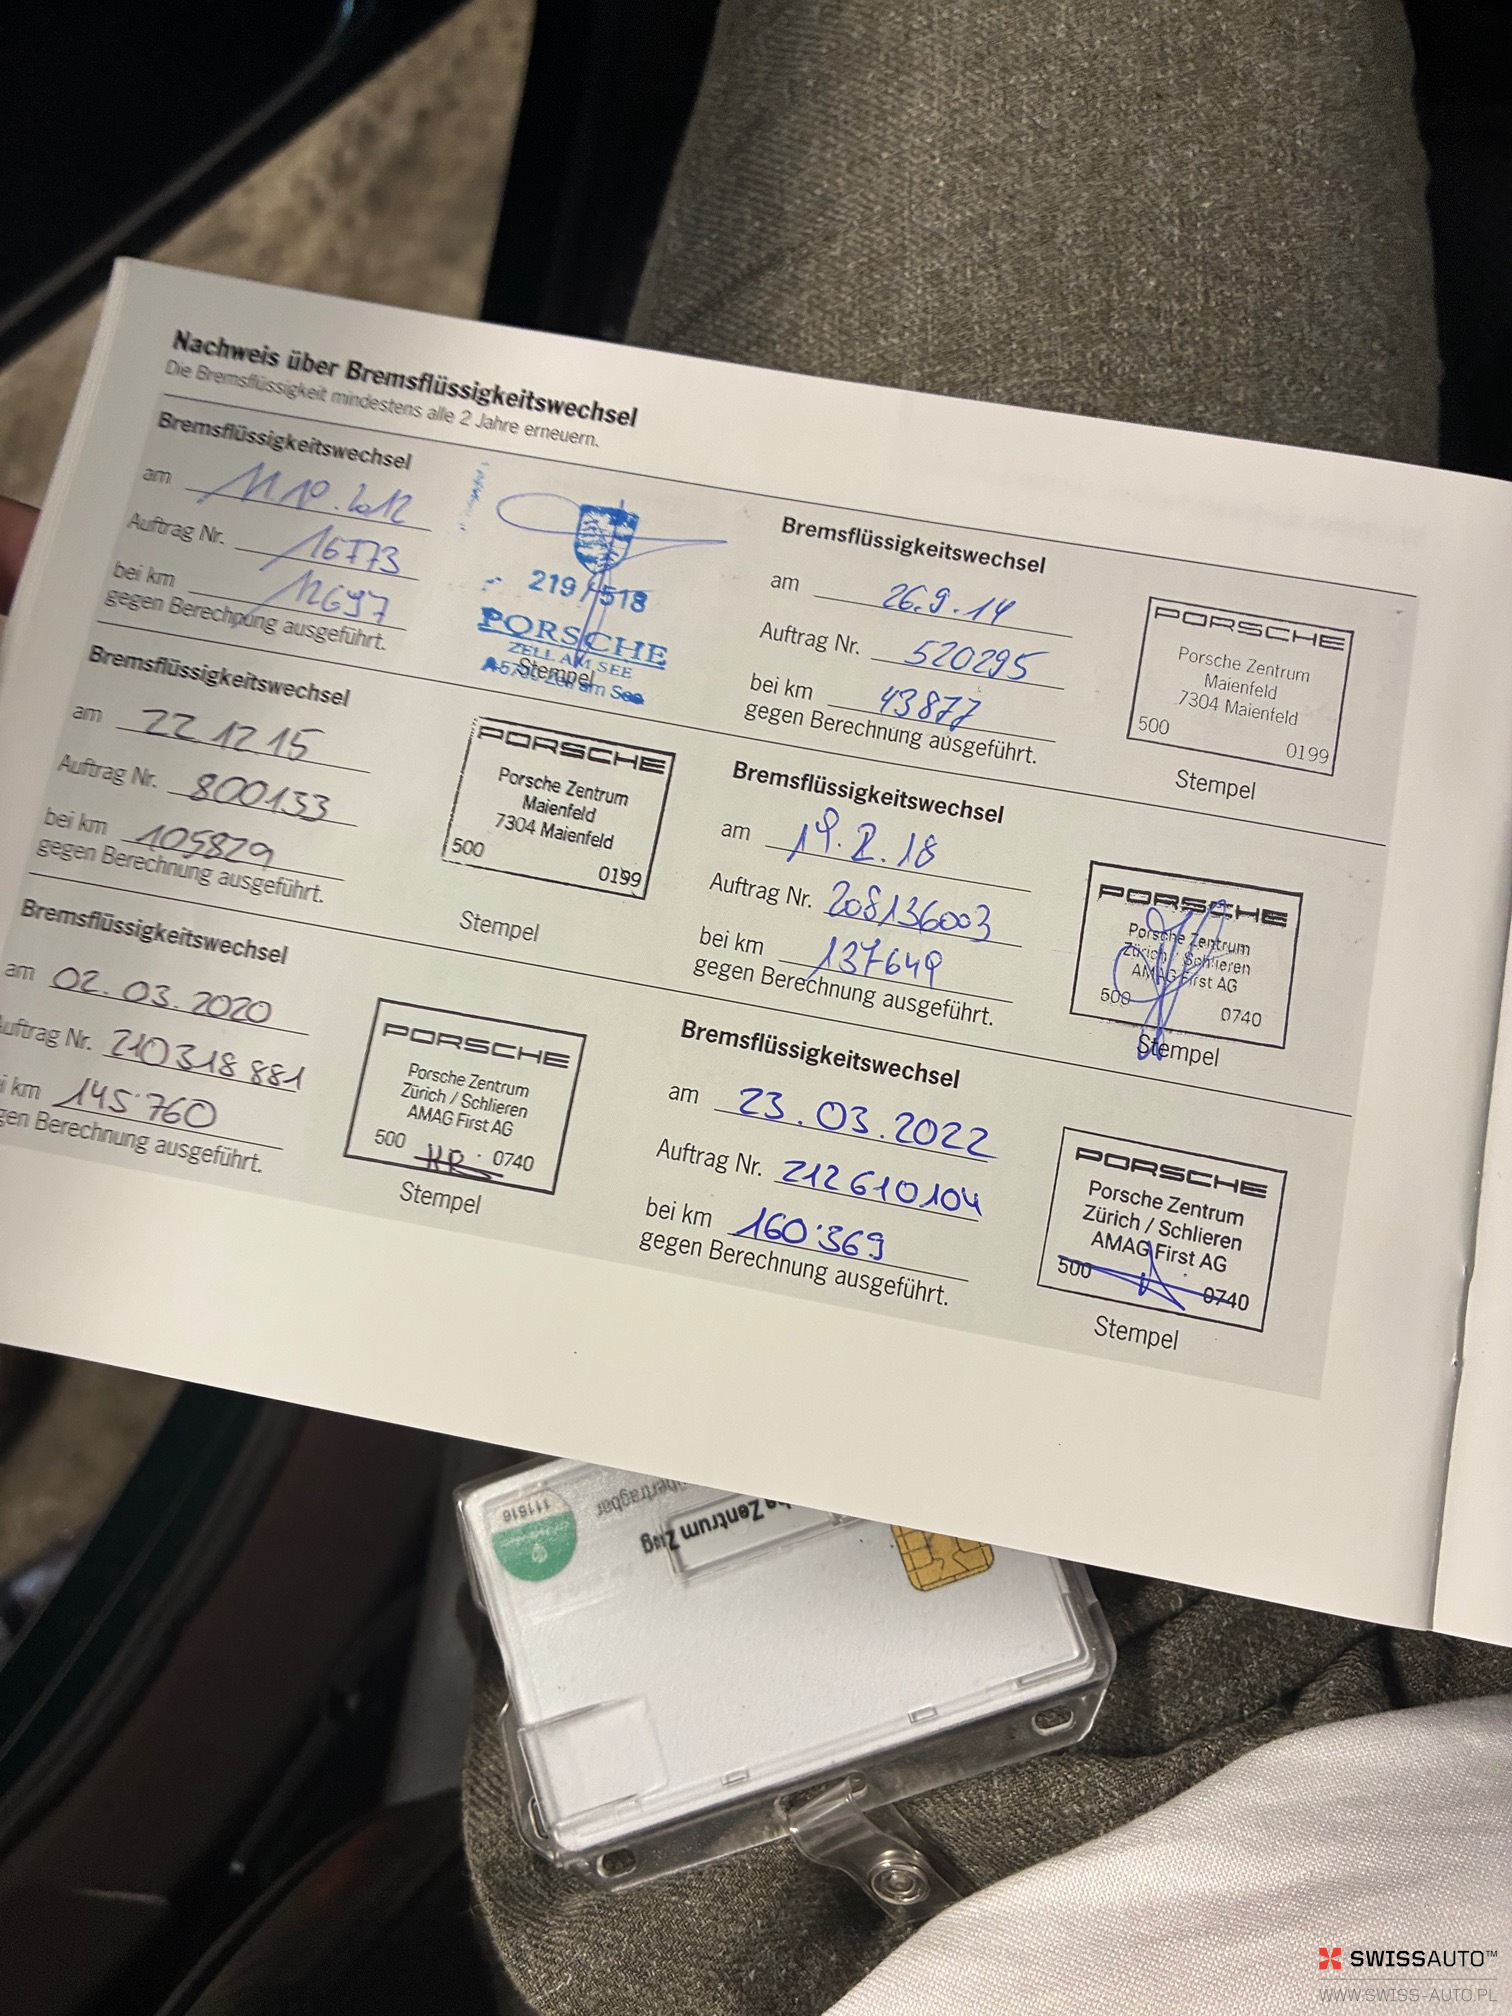 Nachweis über Bremsflüssigkeitswechsel
Die Bremsflüssigkeit mindestens alle 2 Jahre erneuern.
Bremsflüssigkeitswechsel
am 11.10.2012
Auftrag Nr. 16773
bei km 12697
gegen Berechnung ausgeführt.
219 / 518
PORSCHE
ZELL AM SEE
Zell am See
Stempel
Bremsflüssigkeitswechsel
am 26.9.14
Auftrag Nr. 520295
bei km 43877
gegen Berechnung ausgeführt.
PORSCHE
Porsche Zentrum
Maienfeld
7304 Maienfeld
500 0199
Stempel
Bremsflüssigkeitswechsel
am 22 12 15
Auftrag Nr. 800133
bei km 105829
gegen Berechnung ausgeführt.
PORSCHE
Porsche Zentrum
Maienfeld
7304 Maienfeld
500 0199
Stempel
Bremsflüssigkeitswechsel
am
Auftrag Nr. 208136003
bei km 137649
gegen Berechnung ausgeführt.
PORSCHE
Porsche Zentrum
Zürich / Schlieren
AMAG First AG
500 0740
Stempel
Bremsflüssigkeitswechsel
am 02.03.2020
Auftrag Nr. 210318881
i km 145'760
gen Berechnung ausgeführt.
PORSCHE
Porsche Zentrum
Zürich / Schlieren
AMAG First AG
500 0740
Stempel
Bremsflüssigkeitswechsel
am 23.03.2022
Auftrag Nr. 212610104
bei km 160'369
gegen Berechnung ausgeführt.
PORSCHE
Porsche Zentrum
Zürich / Schlieren
AMAG First AG
500 0740
Stempel
Zentrum Zug
übertragbar
111516
SWISSAUTO™
WWW.SWISS-AUTO.PL